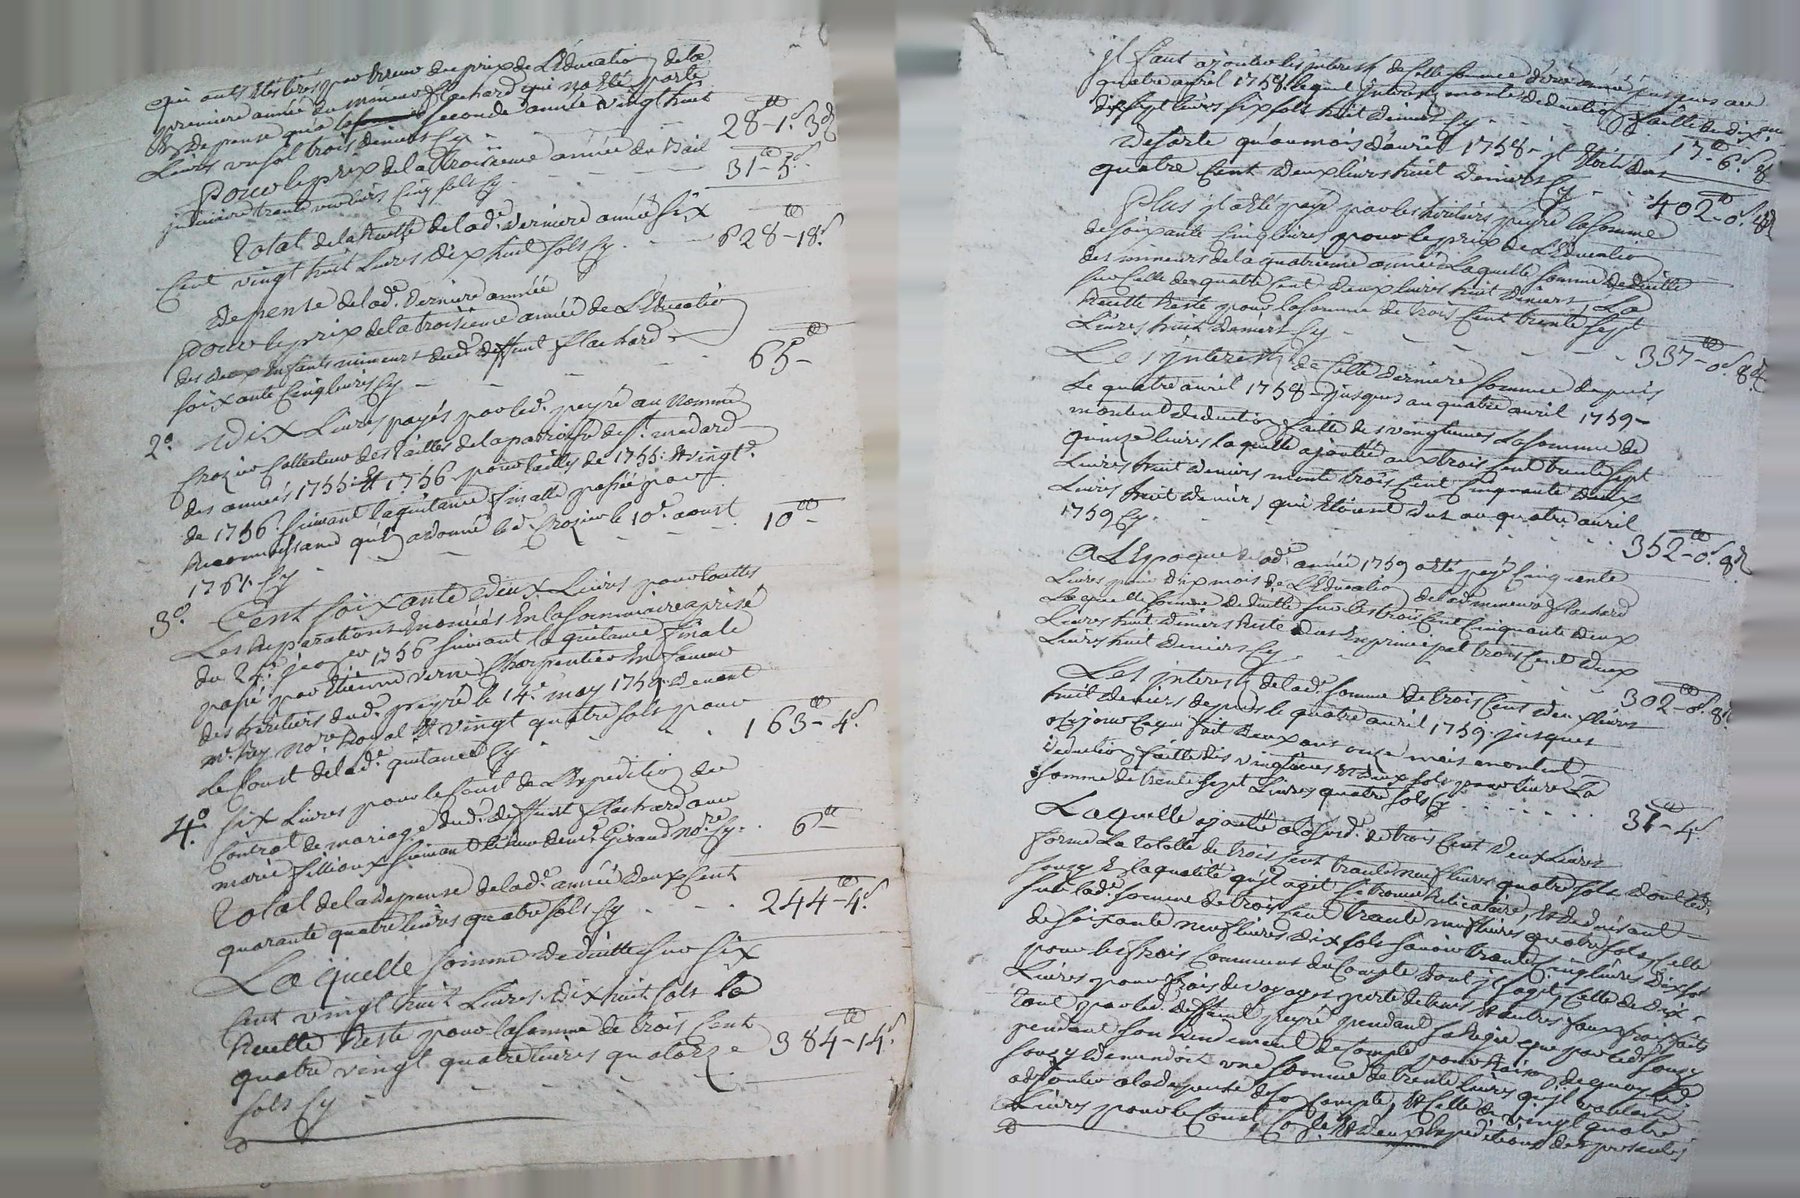 qui ont étés tirés pour Erreur du prix de L'Education de la
premiere année du mineur flachard qui n'a été porté
En depense qu'a la seconde année vingt huit
Livres un sol trois deniers Cy - 28ᵗᵗ-1ˢ.3ᵈ
Pour le prix de la troisieme année du Bail
judiciaire trente une livres Cinq sols Cy - 31ᵗᵗ-5ˢ.
Total de la Recette de lad.ᵉ derniere année six
Cent vingt huit Livres dix huit sols Cy - 628ᵗᵗ-18ˢ.
Depense de lad.ᵉ derniere année
Pour le prix de la troisieme année de L'Education
des deux Enfants mineurs dud.ᵗ deffunt flachard
soixante Cinq livres Cy - 65ᵗᵗ
2.° Dix Livres payés par led.ᵗ peyré au nommé
Crozier Collecteur des tailles de la parroisse de S.ᵗ medard
des années 1755. Et 1756 pour tailles de 1755. Et vingt.ᵉ
de 1756. suivant la quittance finalle passée par
Reconnoissance qu'En a donné led. Crozier le 10.ᵉ aoust
1761. Cy - 10ᵗᵗ
3.° Cent soixante deux Livres pour touttes
Les Reparations Enoncées En la sommaire aprise
du 24.ᵉ fevrier 1756 suivant la quittance finale
passée par Etienne verne Charpentier En faveur
des heritiers dud.ᵗ peyré le 14.ᵉ may 1759. devant
m.ᵉ Rey no.ʳᵉ Royal Et vingt quatre sols pour
le Cout de lad.ᵉ quittance Cy - 163ᵗᵗ-4ˢ.
4.° Six Livres pour le Cout de L'Expedition du
Contrat de mariage dud.ᵗ deffunt flachard avec
marie fillioux suivant le Recu de m.ᵉ Giraud no.ʳᵉ Cy. 6ᵗᵗ
Total de la depense de lad.ᵉ année deux Cent
quarante quatre livres quatre sols Cy - 244ᵗᵗ-4ˢ.
Laquelle somme deduitte sur six
Cent vingt huit Livres dix huit sols la
Recette Reste pour la somme de trois Cent
quatre vingt quatre livres quatorze 384ᵗᵗ-14ˢ.
sols Cy -
Il faut ajouter les interest de Cette somme d'une année jusques au
quatre avril 1758. lequel interest monte deduction faitte du dixieme
dix sept livres six sols huit deniers Cy - 17ᵗᵗ-6ˢ.8
De sorte qu'au mois d'avril 1758 - il Etoit du
quatre Cent deux livres huit deniers Cy - 402ᵗᵗ-0ˢ.8ᵈ
Plus il a été payé par les heritiers peyré la somme
de soixante Cinq livres pour le prix de L'Education
des mineurs de la quatrieme année Laquelle somme deduitte
sur Celle de quatre Cent deux livres huit deniers, La
Recette Reste pour la somme de trois Cent trente sept
Livres huit deniers Cy - 337ᵗᵗ-0ˢ.8ᵈ
Les interest de Cette derniere somme depuis
Le quatre avril 1758 - jusques au quatre avril 1759 -
montent deduction faitte des vingtiemes La somme de
quinze livres laquelle ajoutée aux trois Cent trente sept
Livres huit deniers monte trois Cent Cinquante deux
Livres huit deniers qui Etoient dus au quatre avril
1759 Cy. 352ᵗᵗ-0ˢ.8ᵈ
A L'Epoque de lad.ᵉ année 1759 a été payé Cinquante
Livres pour dix mois de L'Education du mineur flachard
Laquelle somme deduitte sur Les trois Cent Cinquante deux
Livres huit deniers Reste du En principal trois Cent deux
Livres huit deniers Cy - 302ᵗᵗ-0ˢ.8ᵈ
Les interest de lad.ᵉ somme de trois Cent deux livres
huit deniers depuis le quatre avril 1759 - jusques
a Ce jour Ce qui fait deux ans onze mois montent
deduction faitte des vingtiemes Et deux sols pour livre La
somme de trente sept Livres quatre sols Cy - 37ᵗᵗ-4ˢ.
Laquelle ajoutée a lad.ᵉ de trois Cent deux Livres
forme La totalle de trois Cent trente neuf livres quatre sols dont led.ᵗ
Souzy En la qualité qu'il agit se trouve Relicataire, Et deduisant
sur lad.ᵉ somme de trois Cent trente neuf livres quatre sols, Celle
de soixante neuf livres dix sols savoir trente Cinq livres dix sols
pour les frais Communs du Compte dont il s'agit, Celle de dix
Livres pour frais de voyages ports de lettres Et autres faux frais faits
tant par led. deffunt peyré pendant sa Regie que par led. Souzy
pendant son Rendement de Compte pour Raison de quoy led.
Souzy demandoit une somme de trente Livres qu'il vouloit
adjouter a la depense de son Compte, Et Celle de vingt quatre
Livres pour le Cout Et deux Expeditions des presentes